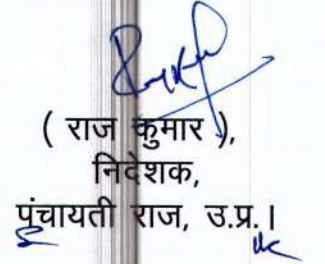 ( राज कुमार ),
निदेशक,
पंचायती राज, उ.प्र.।